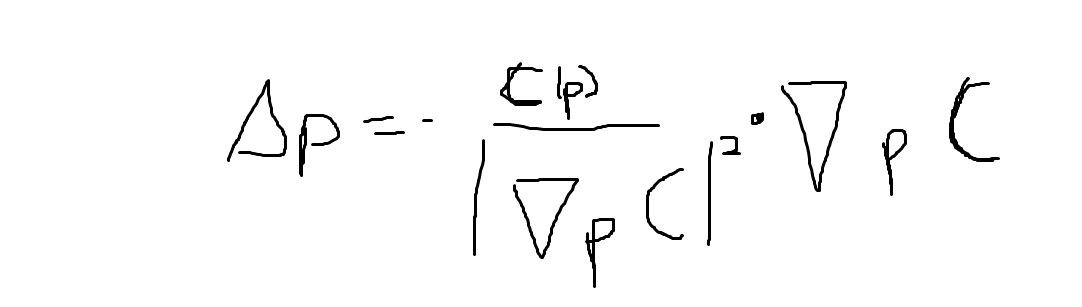 Δp = - C(p) / |∇p C|² · ∇p C